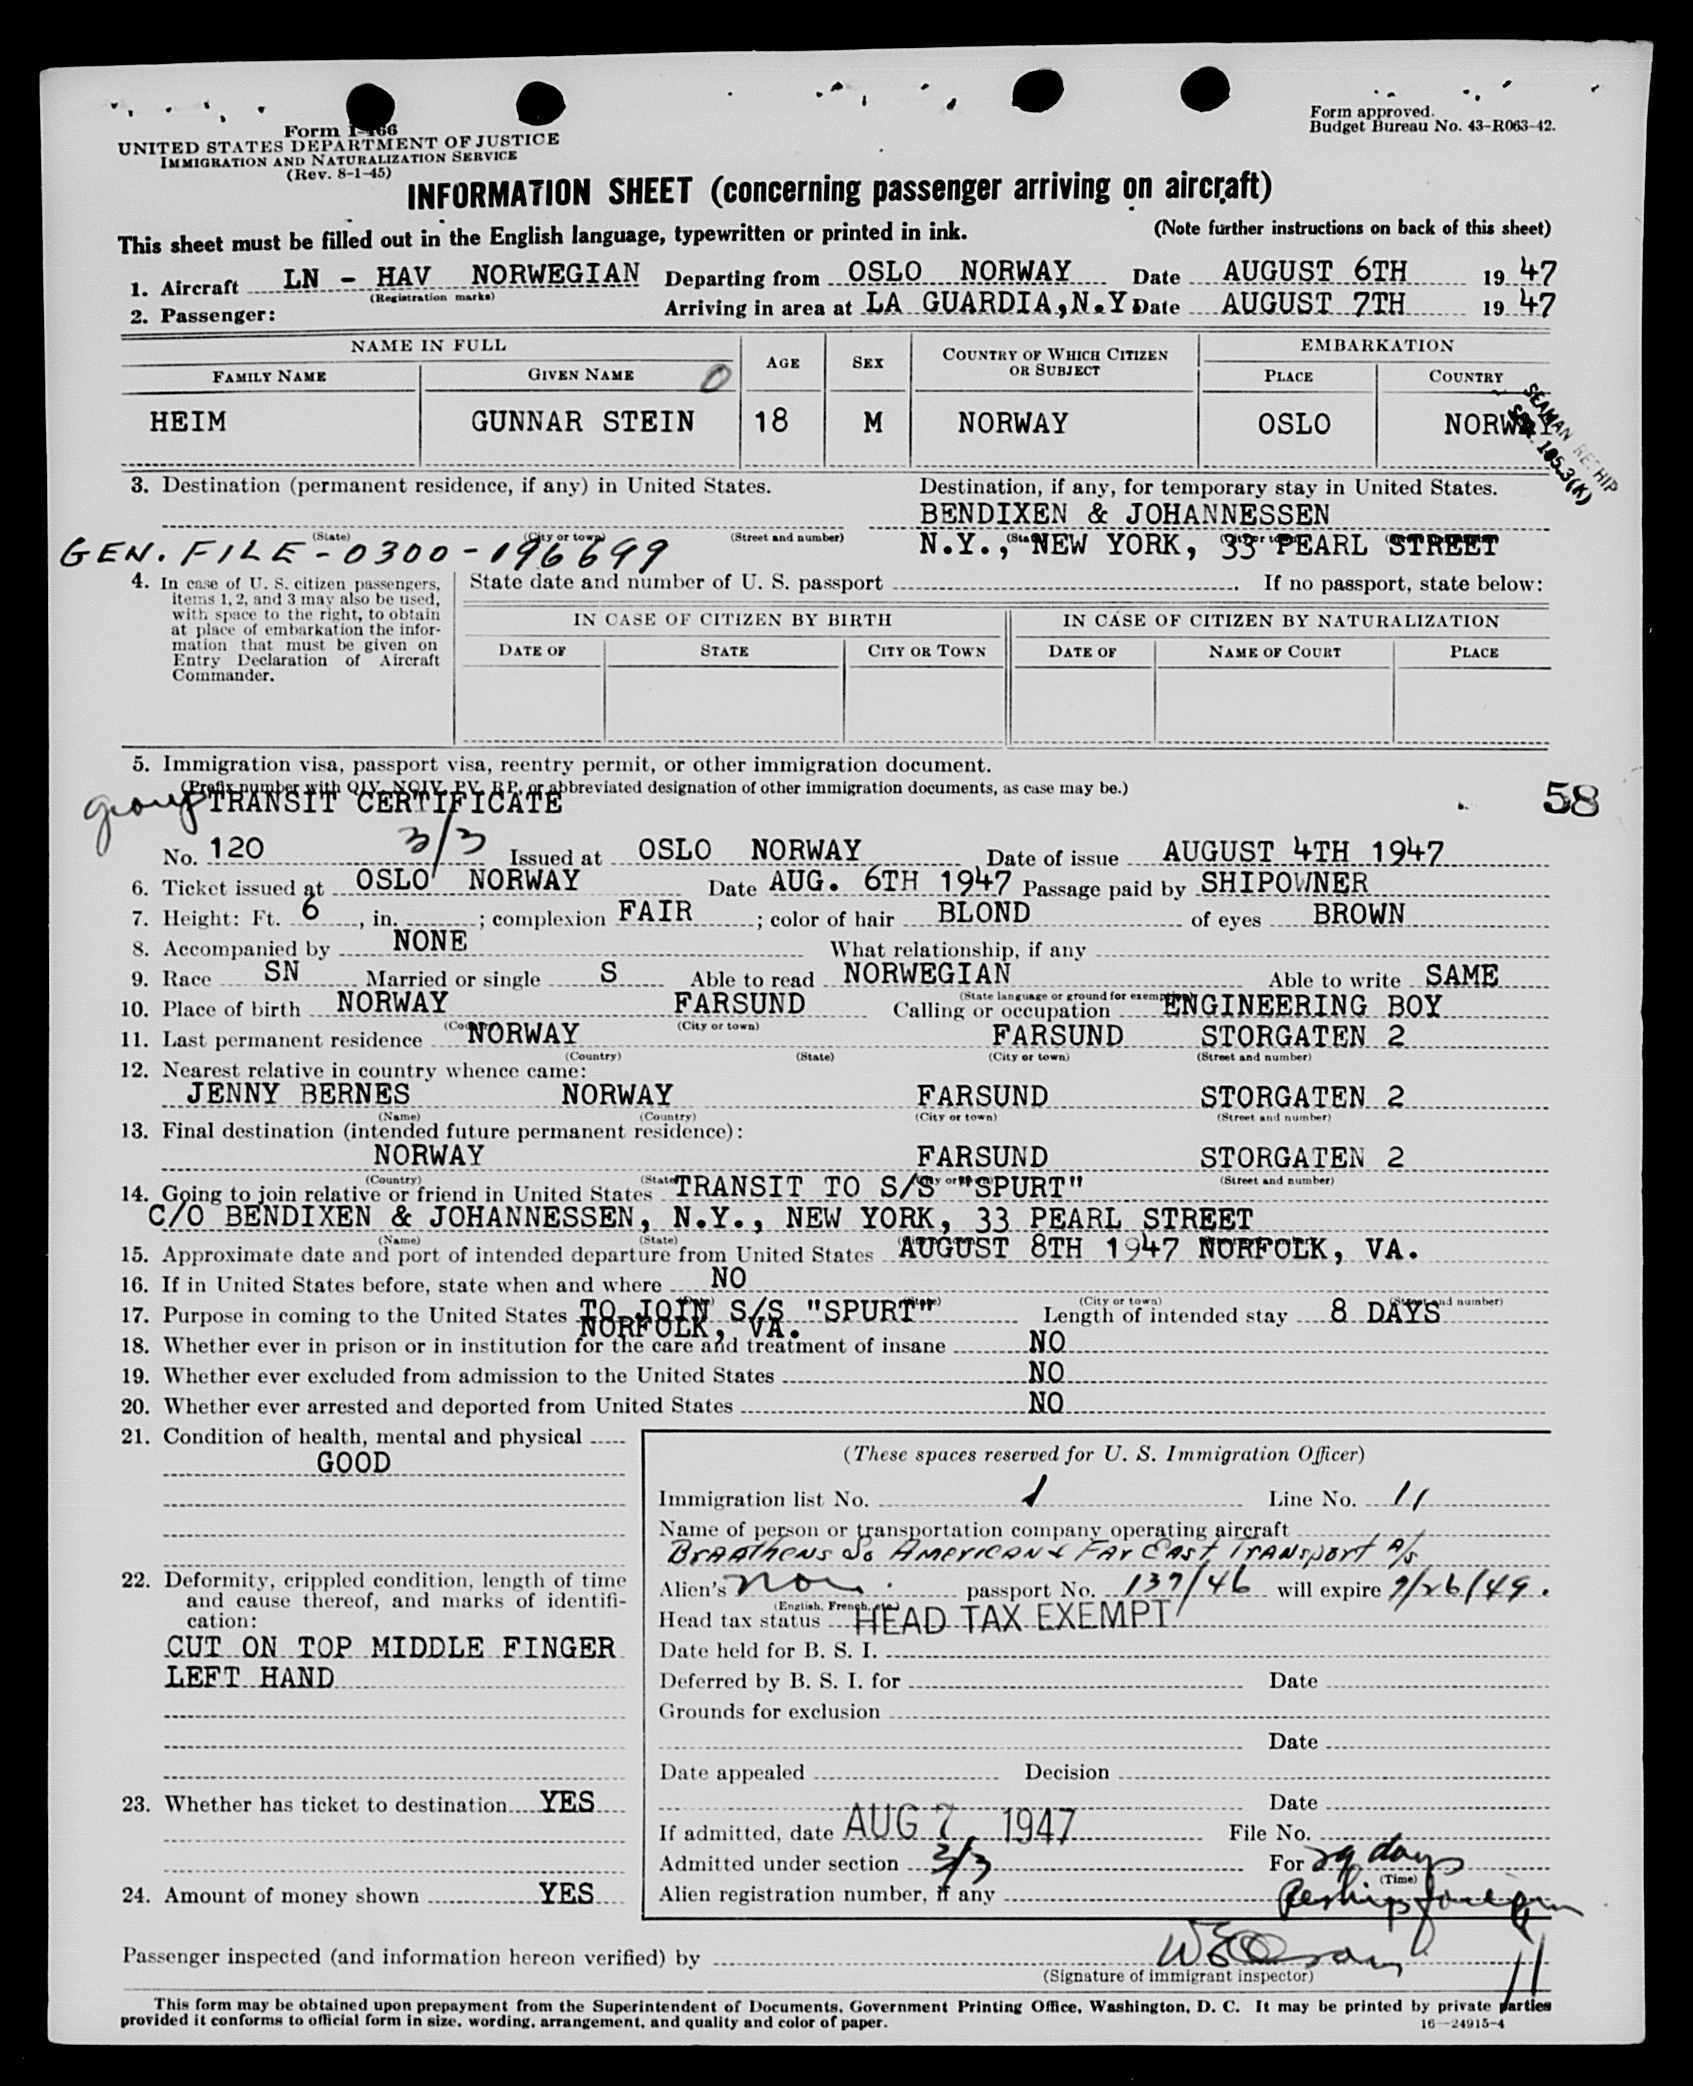 Form I-466
UNITED STATES DEPARTMENT OF JUSTICE
IMMIGRATION AND NATURALIZATION SERVICE
(Rev. 8-1-45)
Form approved.
Budget Bureau No. 43-R063-42.
INFORMATION SHEET (concerning passenger arriving on aircraft)
This sheet must be filled out in the English language, typewritten or printed in ink. (Note further instructions on back of this sheet)
1. Aircraft LN - HAV NORWEGIAN Departing from OSLO NORWAY Date AUGUST 6TH 19 47
(Registration marks)
2. Passenger: Arriving in area at LA GUARDIA, N.Y. Date AUGUST 7TH 19 47
NAME IN FULL AGE SEX COUNTRY OF WHICH CITIZEN OR SUBJECT EMBARKATION
FAMILY NAME GIVEN NAME 0 PLACE COUNTRY
HEIM GUNNAR STEIN 18 M NORWAY OSLO NORWAY
SEAMAN RESHIP
SEC. 105.3(K)
3. Destination (permanent residence, if any) in United States. Destination, if any, for temporary stay in United States.
BENDIXEN & JOHANNESSEN
(State) (City or town) (Street and number) N.Y., NEW YORK, 33 PEARL STREET
GEN. FILE - 0300 - 196699
4. In case of U. S. citizen passengers, items 1, 2, and 3 may also be used, with space to the right, to obtain at place of embarkation the information that must be given on Entry Declaration of Aircraft Commander.
State date and number of U. S. passport If no passport, state below:
IN CASE OF CITIZEN BY BIRTH IN CASE OF CITIZEN BY NATURALIZATION
DATE OF STATE CITY OR TOWN DATE OF NAME OF COURT PLACE
5. Immigration visa, passport visa, reentry permit, or other immigration document.
(Prefix number with QIV, NQIV, PV, RP, or abbreviated designation of other immigration documents, as case may be.)
group TRANSIT CERTIFICATE 58
No. 120 3/3 Issued at OSLO NORWAY Date of issue AUGUST 4TH 1947
6. Ticket issued at OSLO NORWAY Date AUG. 6TH 1947 Passage paid by SHIPOWNER
7. Height: Ft. 6, in. ; complexion FAIR ; color of hair BLOND of eyes BROWN
8. Accompanied by NONE What relationship, if any
9. Race SN Married or single S Able to read NORWEGIAN Able to write SAME
(State language or ground for exemption)
10. Place of birth NORWAY FARSUND Calling or occupation ENGINEERING BOY
(Country) (City or town)
11. Last permanent residence NORWAY FARSUND STORGATEN 2
(Country) (State) (City or town) (Street and number)
12. Nearest relative in country whence came:
JENNY BERNES NORWAY FARSUND STORGATEN 2
(Name) (Country) (City or town) (Street and number)
13. Final destination (intended future permanent residence):
NORWAY FARSUND STORGATEN 2
(Country) (State) (City or town) (Street and number)
14. Going to join relative or friend in United States TRANSIT TO S/S "SPURT"
C/O BENDIXEN & JOHANNESSEN, N.Y., NEW YORK, 33 PEARL STREET
(Name) (State)
15. Approximate date and port of intended departure from United States AUGUST 8TH 1947 NORFOLK, VA.
16. If in United States before, state when and where NO
(State) (City or town) (Street and number)
17. Purpose in coming to the United States TO JOIN S/S "SPURT" Length of intended stay 8 DAYS
NORFOLK, VA.
18. Whether ever in prison or in institution for the care and treatment of insane NO
19. Whether ever excluded from admission to the United States NO
20. Whether ever arrested and deported from United States NO
21. Condition of health, mental and physical
GOOD
22. Deformity, crippled condition, length of time and cause thereof, and marks of identification:
CUT ON TOP MIDDLE FINGER
LEFT HAND
23. Whether has ticket to destination YES
24. Amount of money shown YES
(These spaces reserved for U. S. Immigration Officer)
Immigration list No. 1 Line No. 11
Name of person or transportation company operating aircraft
Braathens So American & Far East Transport A/S
Alien's Nor. passport No. 137/46 will expire 7/26/49.
(English, French, etc.)
Head tax status HEAD TAX EXEMPT
Date held for B. S. I.
Deferred by B. S. I. for Date
Grounds for exclusion
Date
Date appealed Decision
Date
If admitted, date AUG 7 1947 File No.
Admitted under section 3/3 For 29 days
(Time)
Alien registration number, if any Reship foreign
Passenger inspected (and information hereon verified) by
(Signature of immigrant inspector) 11
This form may be obtained upon prepayment from the Superintendent of Documents, Government Printing Office, Washington, D. C. It may be printed by private parties
provided it conforms to official form in size, wording, arrangement, and quality and color of paper.
16—24915-4